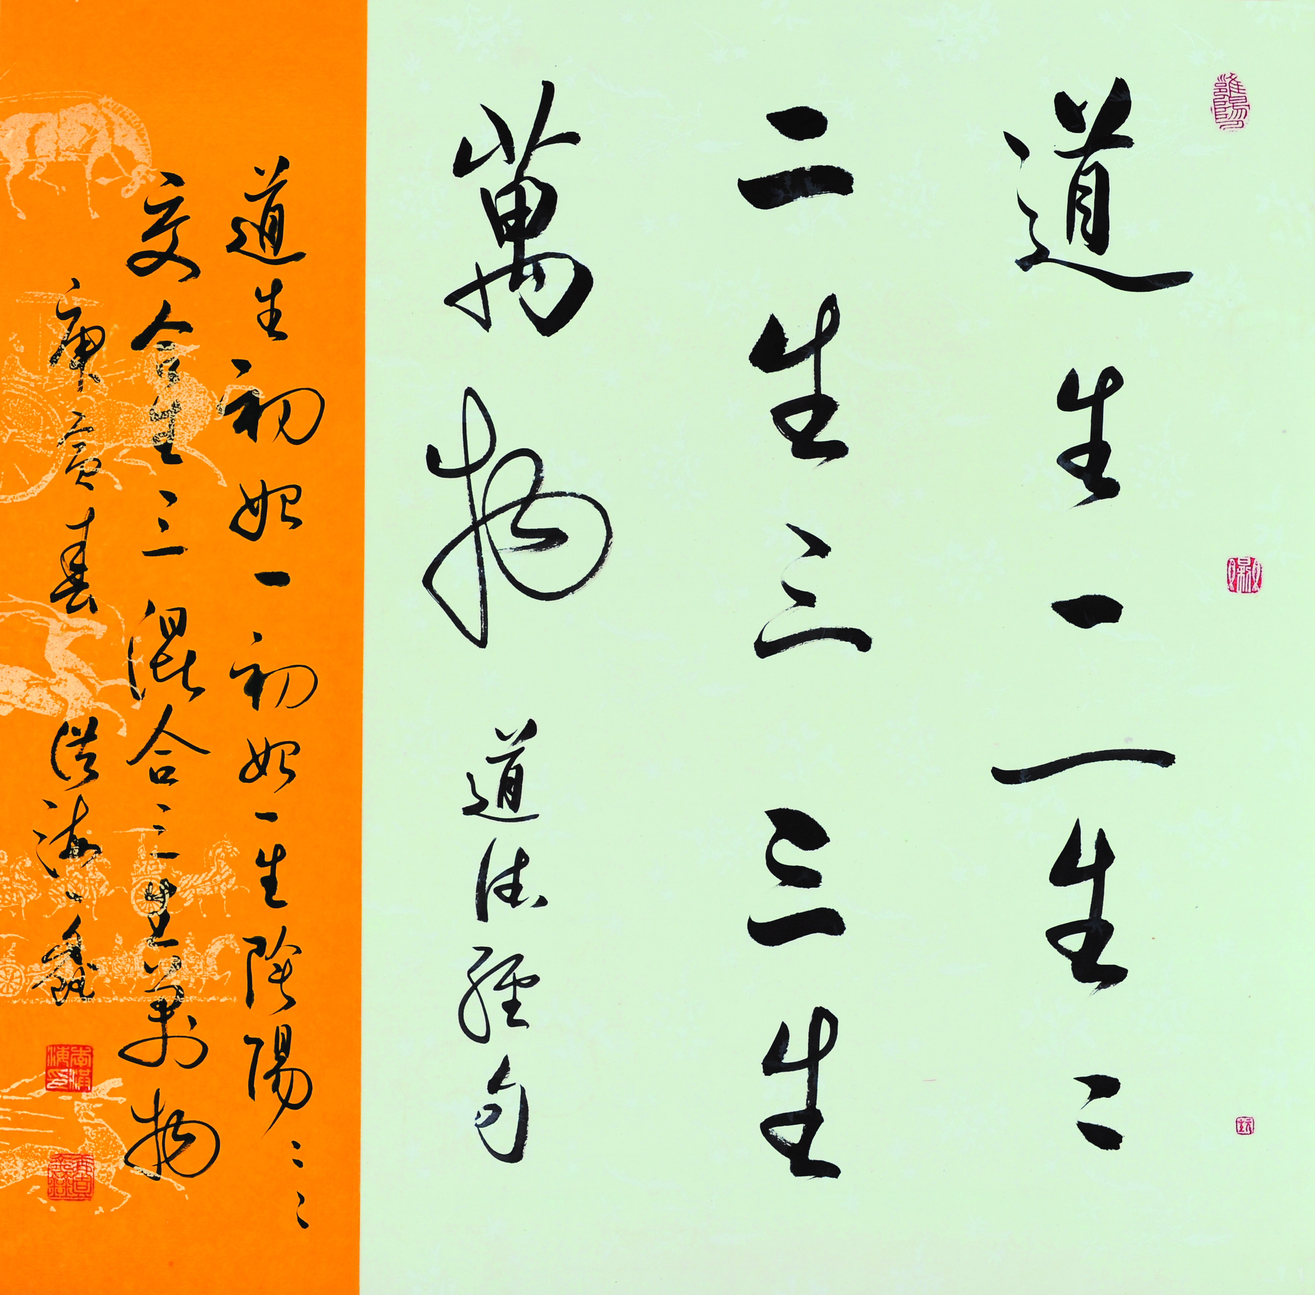 道生一一生二
二生三三生
萬物 道德經句
道生初始一初始一生陰陽二二
交合生三混合三生萬物
庚寅春 洪海